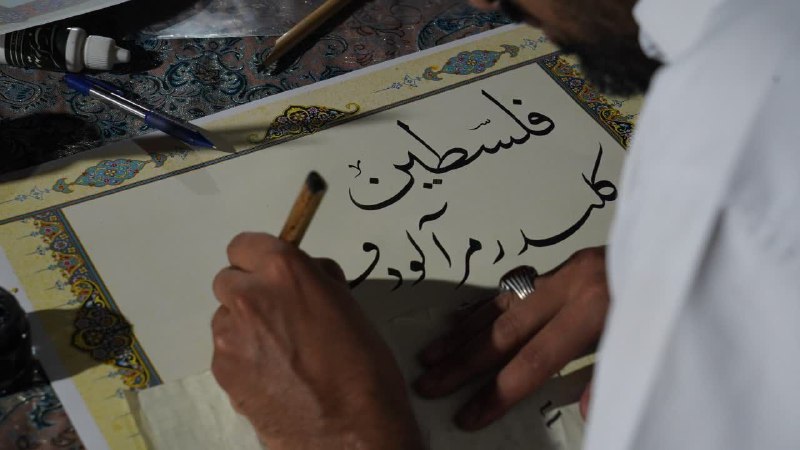 فلسطین
کلید رمزآلود